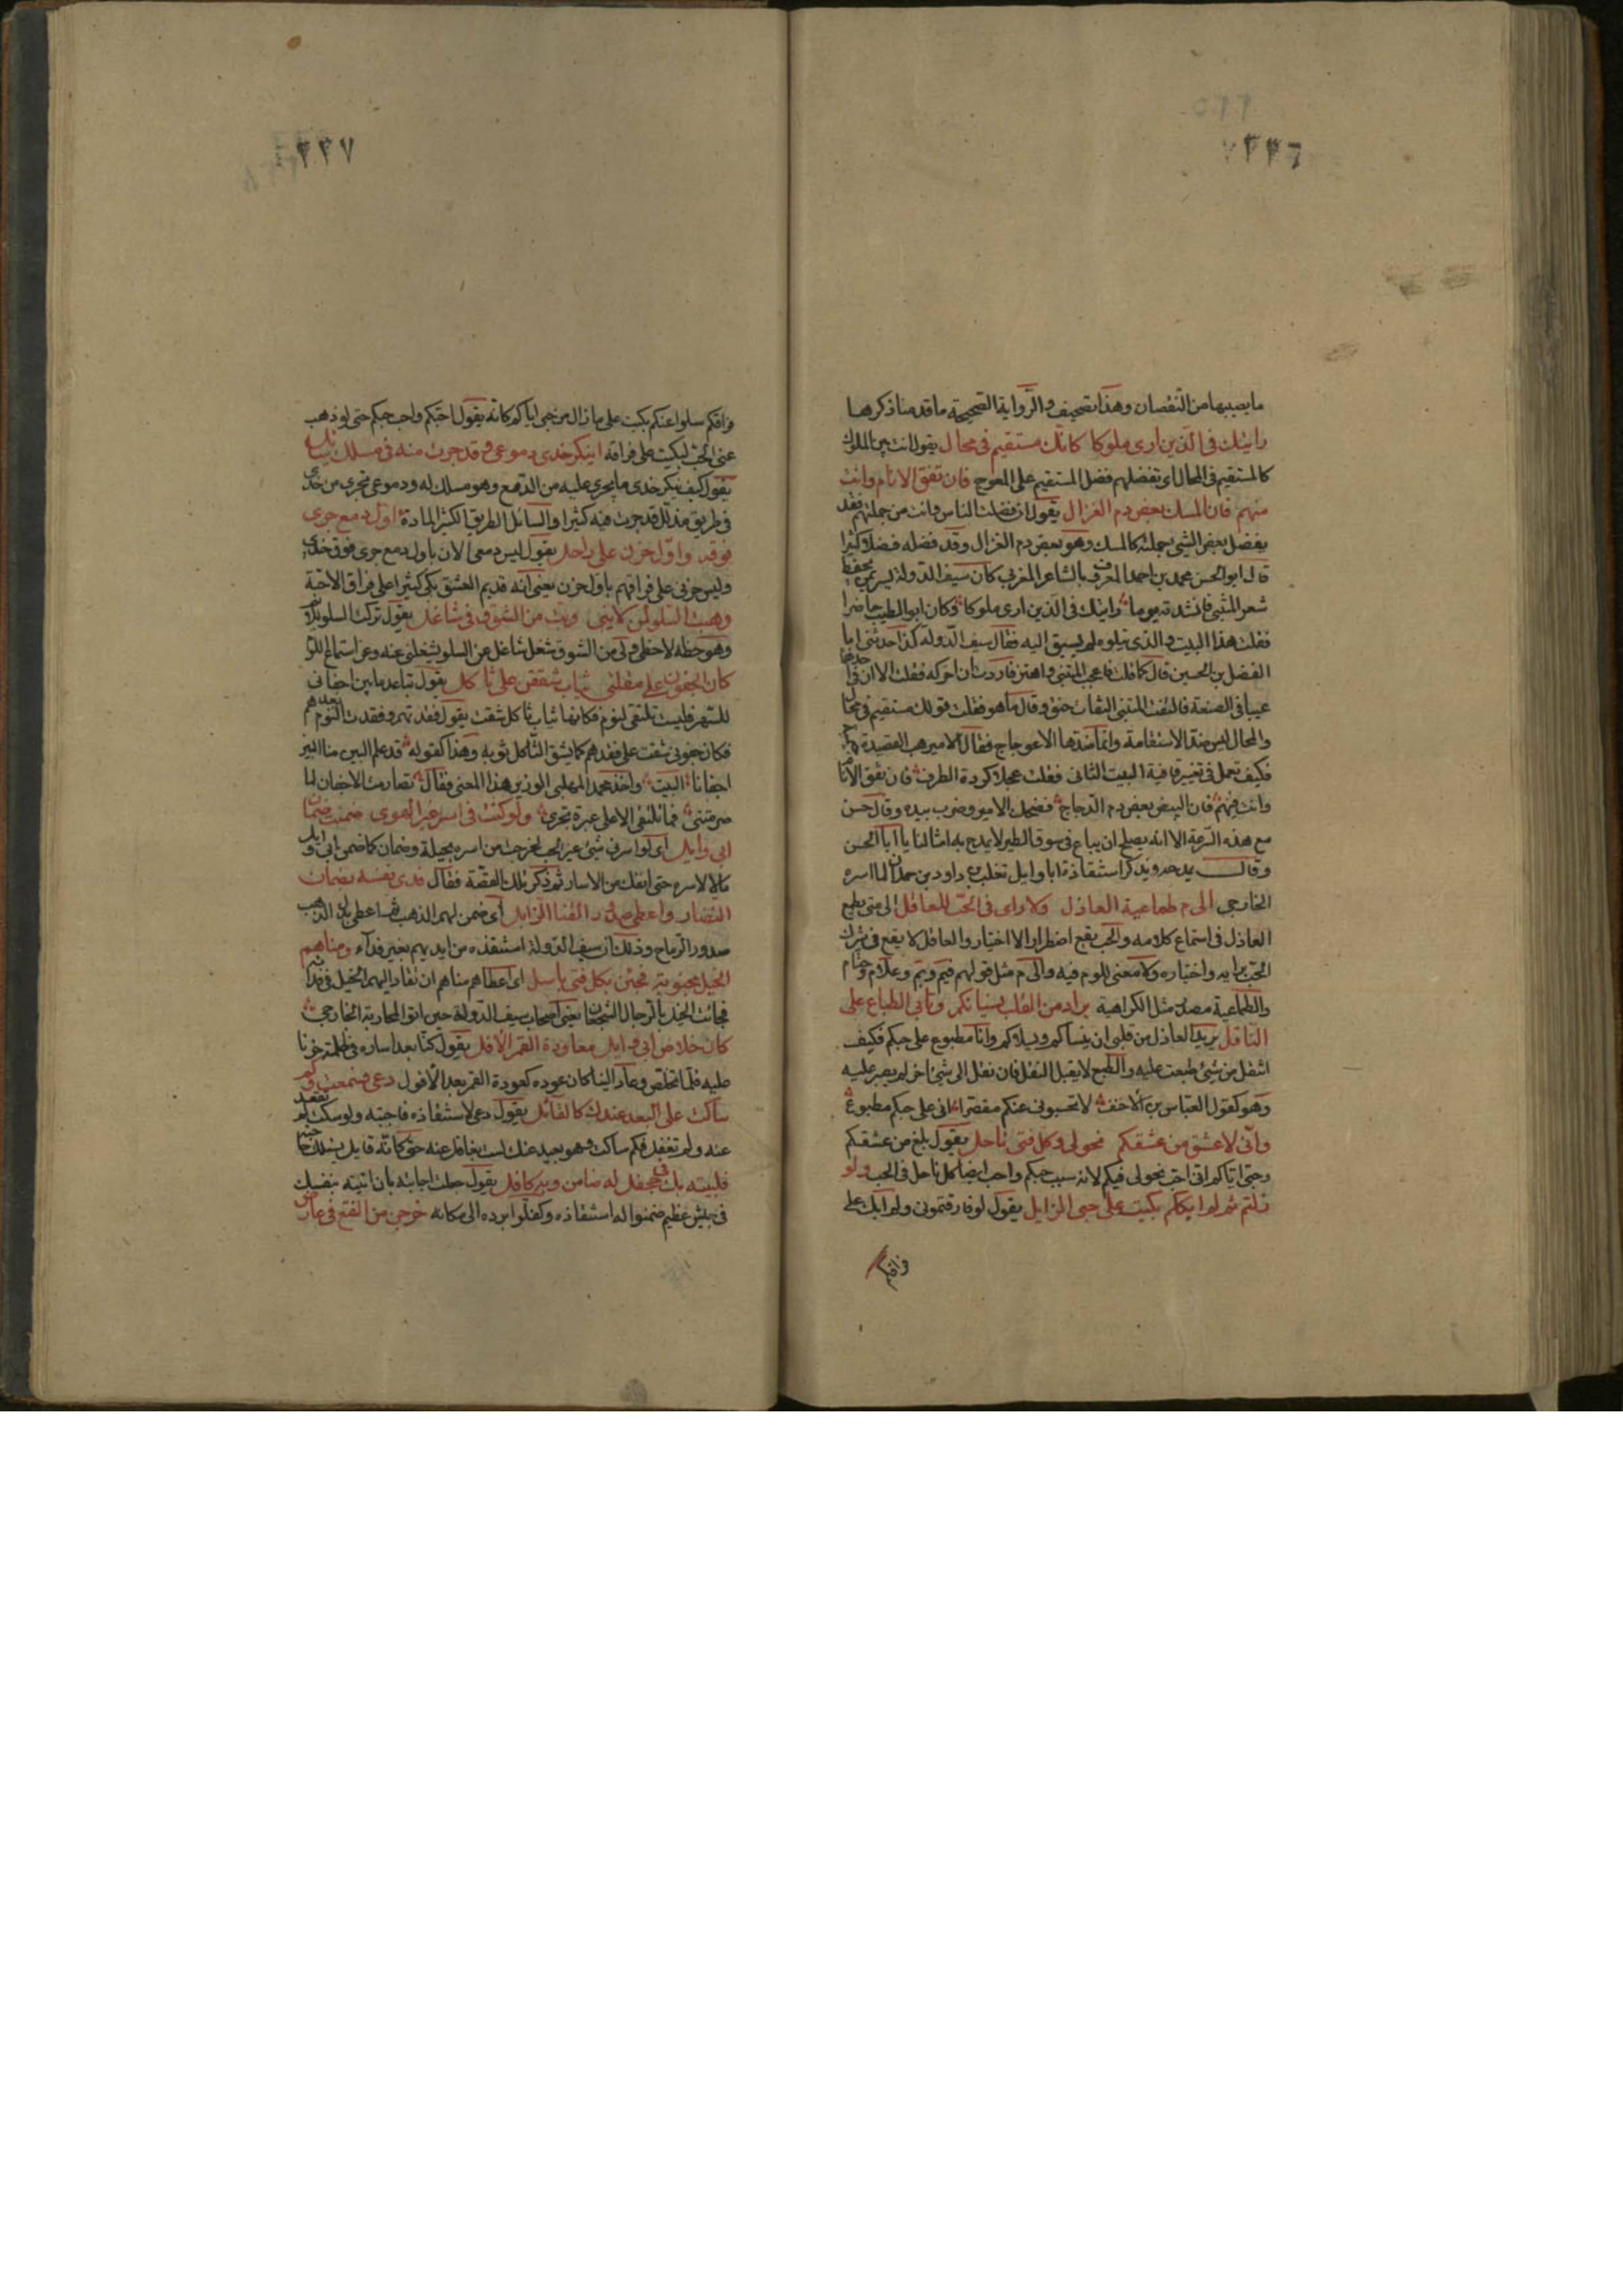 ٣٣٦
ما يصيبها من النقصان وهذا تصحيف والرواية الصحيحة ما قدمنا ذكرها
رايتك في الذين ارى ملوكا كانك مستقيم في محال يقول انت بين الملوك
كالمستقيم في المحال اي تفضلهم فضل المستقيم على المعوج فان تفق الانام وانت
منهم فان المسك بعض دم الغزال يقول ان فضلت الناس وانت من جملتهم فقد
يفضل بعض الشي جملته كالمسك وهو بعض دم الغزال وقد فضله فضلا كثيرا
قال ابو الحسن محمد بن احمد المعروف بالشاعر المغربي كان سيف الدولة يسر بمن يحفظ
شعر المتنبي فانشدته يوما رايتك في الذين ارى ملوكا وكان ابو الطيب حاضرا
فقلت هذا البيت والذي يتلوه لم يسبق اليه فقال سيف الدولة كذا حدثني ابا
الفضل بن الحسين قال كما قلت فاعجب المتنبي واهتز فاردت ان احركه فقلت الا ان في احدهما
عيبا في الصنعة فالتفت المتنبي التفات حنق وقال ما هو فقلت قولك مستقيم في محال
والمحال ليس ضد الاستقامة وانما ضدها الاعوجاج فقال الامير هب القصيدة
فكيف تعمل في تغيير قافية البيت الثاني فقلت عجلا كردة الطرف فان تفق الانام
وانت منهم فان البيض بعض دم الدجاج فضحك الامير وضرب بيده وقال حسن
مع هذه السرعة الا انه يصلح ان يباع في سوق الطير لا يمدح به امثالنا يا ابا الحسن
وقال يمدحه ويذكر استنقاذه ابا وايل تغلب بن داود بن حمدان لما اسره
الخارجي الى م طماعية العاذل ولا راى في الحب للعاقل الى متى يطمع
العاذل في استماع كلامه والحب يقع اضطرارا لا اختيارا والعاقل لا يقع في شرك
الحب برايه واختياره ولا معنى للوم فيه والى م مثل قولهم فيم وبم وعلام وحتام
والطماعية مصدر مثل الكراهية يراد من القلب نسيانكم وتابى الطباع على
الناقل يريد العاذل من قلبي ان ينساكم ويسلاكم وانا مطبوع على حبكم فكيف
انتقل من شئ طبعت عليه والطبع لا يقبل النقل فان نقل الى شئ اخر لم يصبر عليه
وهو كقول العباس بن الاحنف لا تحسبوني عنكم مقصرا اني على حبكم مطبوع
واني لاعشق من عشقكم نحولي وكل فتى ناحل يقول بلغ من عشقكم
وحبي اياكم اني احب نحولي فيكم لانه سبب حبكم واحب ايضا كل ناحل في الحب ولو
زلتم ثم لم ابككم بكيت على حبي الزايل يقول لو فارقتموني ولم ابك على
فراقكم
٣٣٧
فراقكم سلوا عنكم بكيت على ما زال من حبي اياكم كانه يقول احبكم واحب حبكم حتى لو ذهب
عني الحب لبكيت على فراقه اينكر خدي دموعي وقد جرت منه في مسلك سابل
يقول كيف ينكر خدي ما يجري عليه من الدمع وهو مسلك له ودموعي تجري من خدي
في طريق مذلل قد جرت فيه كثيرا والسائل الطريق الكثير المادة اول دمع جرى
فوقه واول حزن على راحل يقول ليس دمعي الان باول دمع جرى فوق خدي
وليس حزني على فراقهم باول حزن يعني انه قديم العشق بكى كثيرا على فراق الاحبة
وهبت السلو لمن لامني وبت من الشوق في شاغل يقول تركت السلو للائم
وهو حظه لا حظي ولي من الشوق شغل شاغل عن السلو يشغلني عنه وعن استماع اللوم
كان الجفون على مقلتي ثياب شققن على ثاكل يقول تباعد ما بين اجفاني
للسهر فليست تلتقي لنوم فكانها ثياب ثاكل شقت يقول فقدتهم وفقدت النوم بعدهم
فكان جفوني شقت على فقدهم كما يشق الثاكل ثوبه وهذا كقوله قد علم البين منا البين
اجفانا البيت واخذ محمد المهلبي الوزير هذا المعنى فقال تصارمت الاجفان لما
صرمتني فما تلتقي الا على عبرة تجري ولو كنت في اسر غير الهوى ضمنت ضمان
ابي وايل اي لو اسرني شئ غير الحب لخرجت من اسره بحيلة وضمان كما ضمن ابي وايل
مالا لاسره حتى انفك من الاسار ثم ذكر تلك القصة فقال فدى نفسه بضمان
النضار واعطى صدور القنا الذابل اي ضمن لهم الذهب ثم اعطى بدل الذهب
صدور الرماح وذلك ان سيف الدولة استنقذه من ايديهم بغير فداء ومناهم
الخيل مجنوبة فجئن بكل فتى باسل اي اعطاهم مناهم ان تقاد اليهم الخيل في فدائه
فجائت الخيل بالرجال الشجعان يعني اصحاب سيف الدولة حين اتوا لمحاربة الخارجي
كان خلاص ابي وايل معاودة القمر الآفل يقول كنا بعد اساره في ظلمة حزنا
عليه فلما تخلص وعاد الينا كان عوده كعودة القمر بعد الافول دعى فسمعت وكم
ساكت على البعد عندك كالقائل يقول دعى لاستنقاذه فاجبته ولو سكت لم تقعد
عنه ولم تغفل فكم ساكت وهو بعيد عنك لست بغافل عنه حتى كانه قايل يسئلك حاجته
فلبيته بك في جحفل له ضامن وبه كافل يقول جعلت اجابته بان اتيته بنفسك
في جيش عظيم ضمنوا له استنقاذه وكفلوا برده الى مكانه خرجن من النقع في عارض